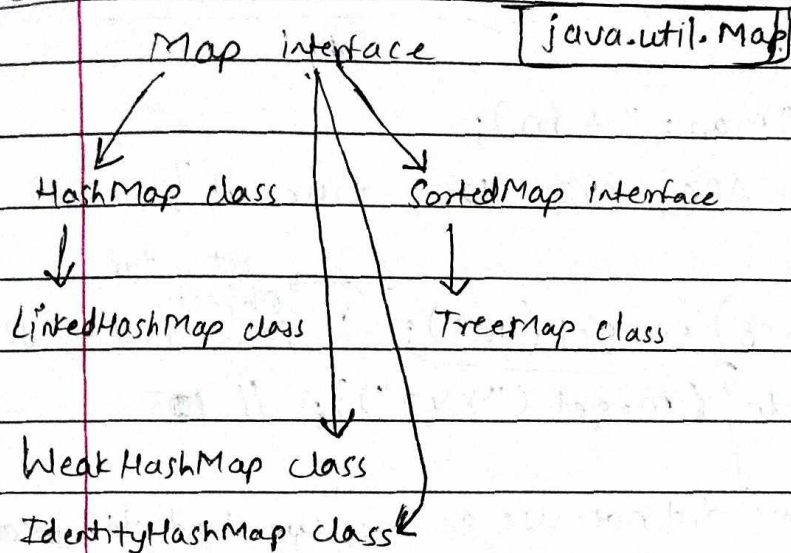 Map interface
java.util.Map
HashMap class
SortedMap Interface
LinkedHashMap class
TreeMap class
WeakHashMap class
IdentityHashMap class